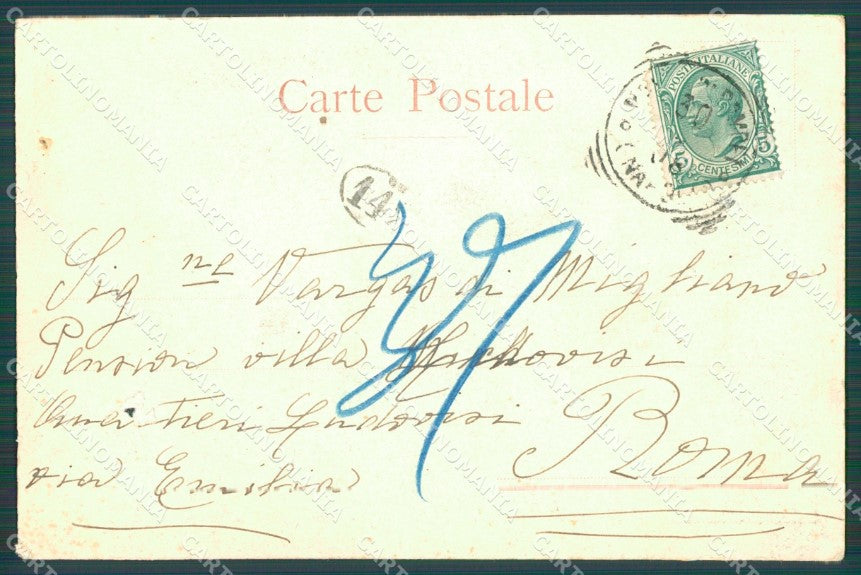 Carte Postale
POSTE ITALIANE
5 CENTESIMI 5
14
37
Sig ne Vargas di Migliano
Pension villa
Quartieri Ludovisi
Roma
via Emilia
CARTOLINOMANIA